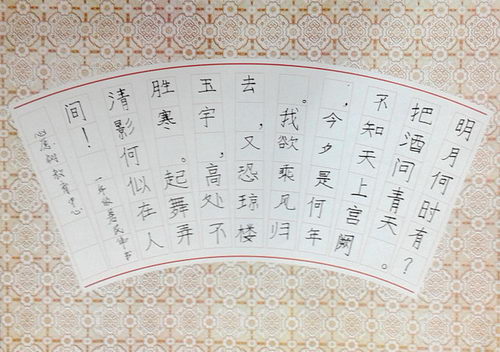 明月何时有？
把酒问青天。
不知天上宫阙
，今夕是何年
。我欲乘风归
去，又恐琼楼
五宇，高处不
胜寒。起舞弄
清影何似在人
间！
一年级书
心愿树教育中心